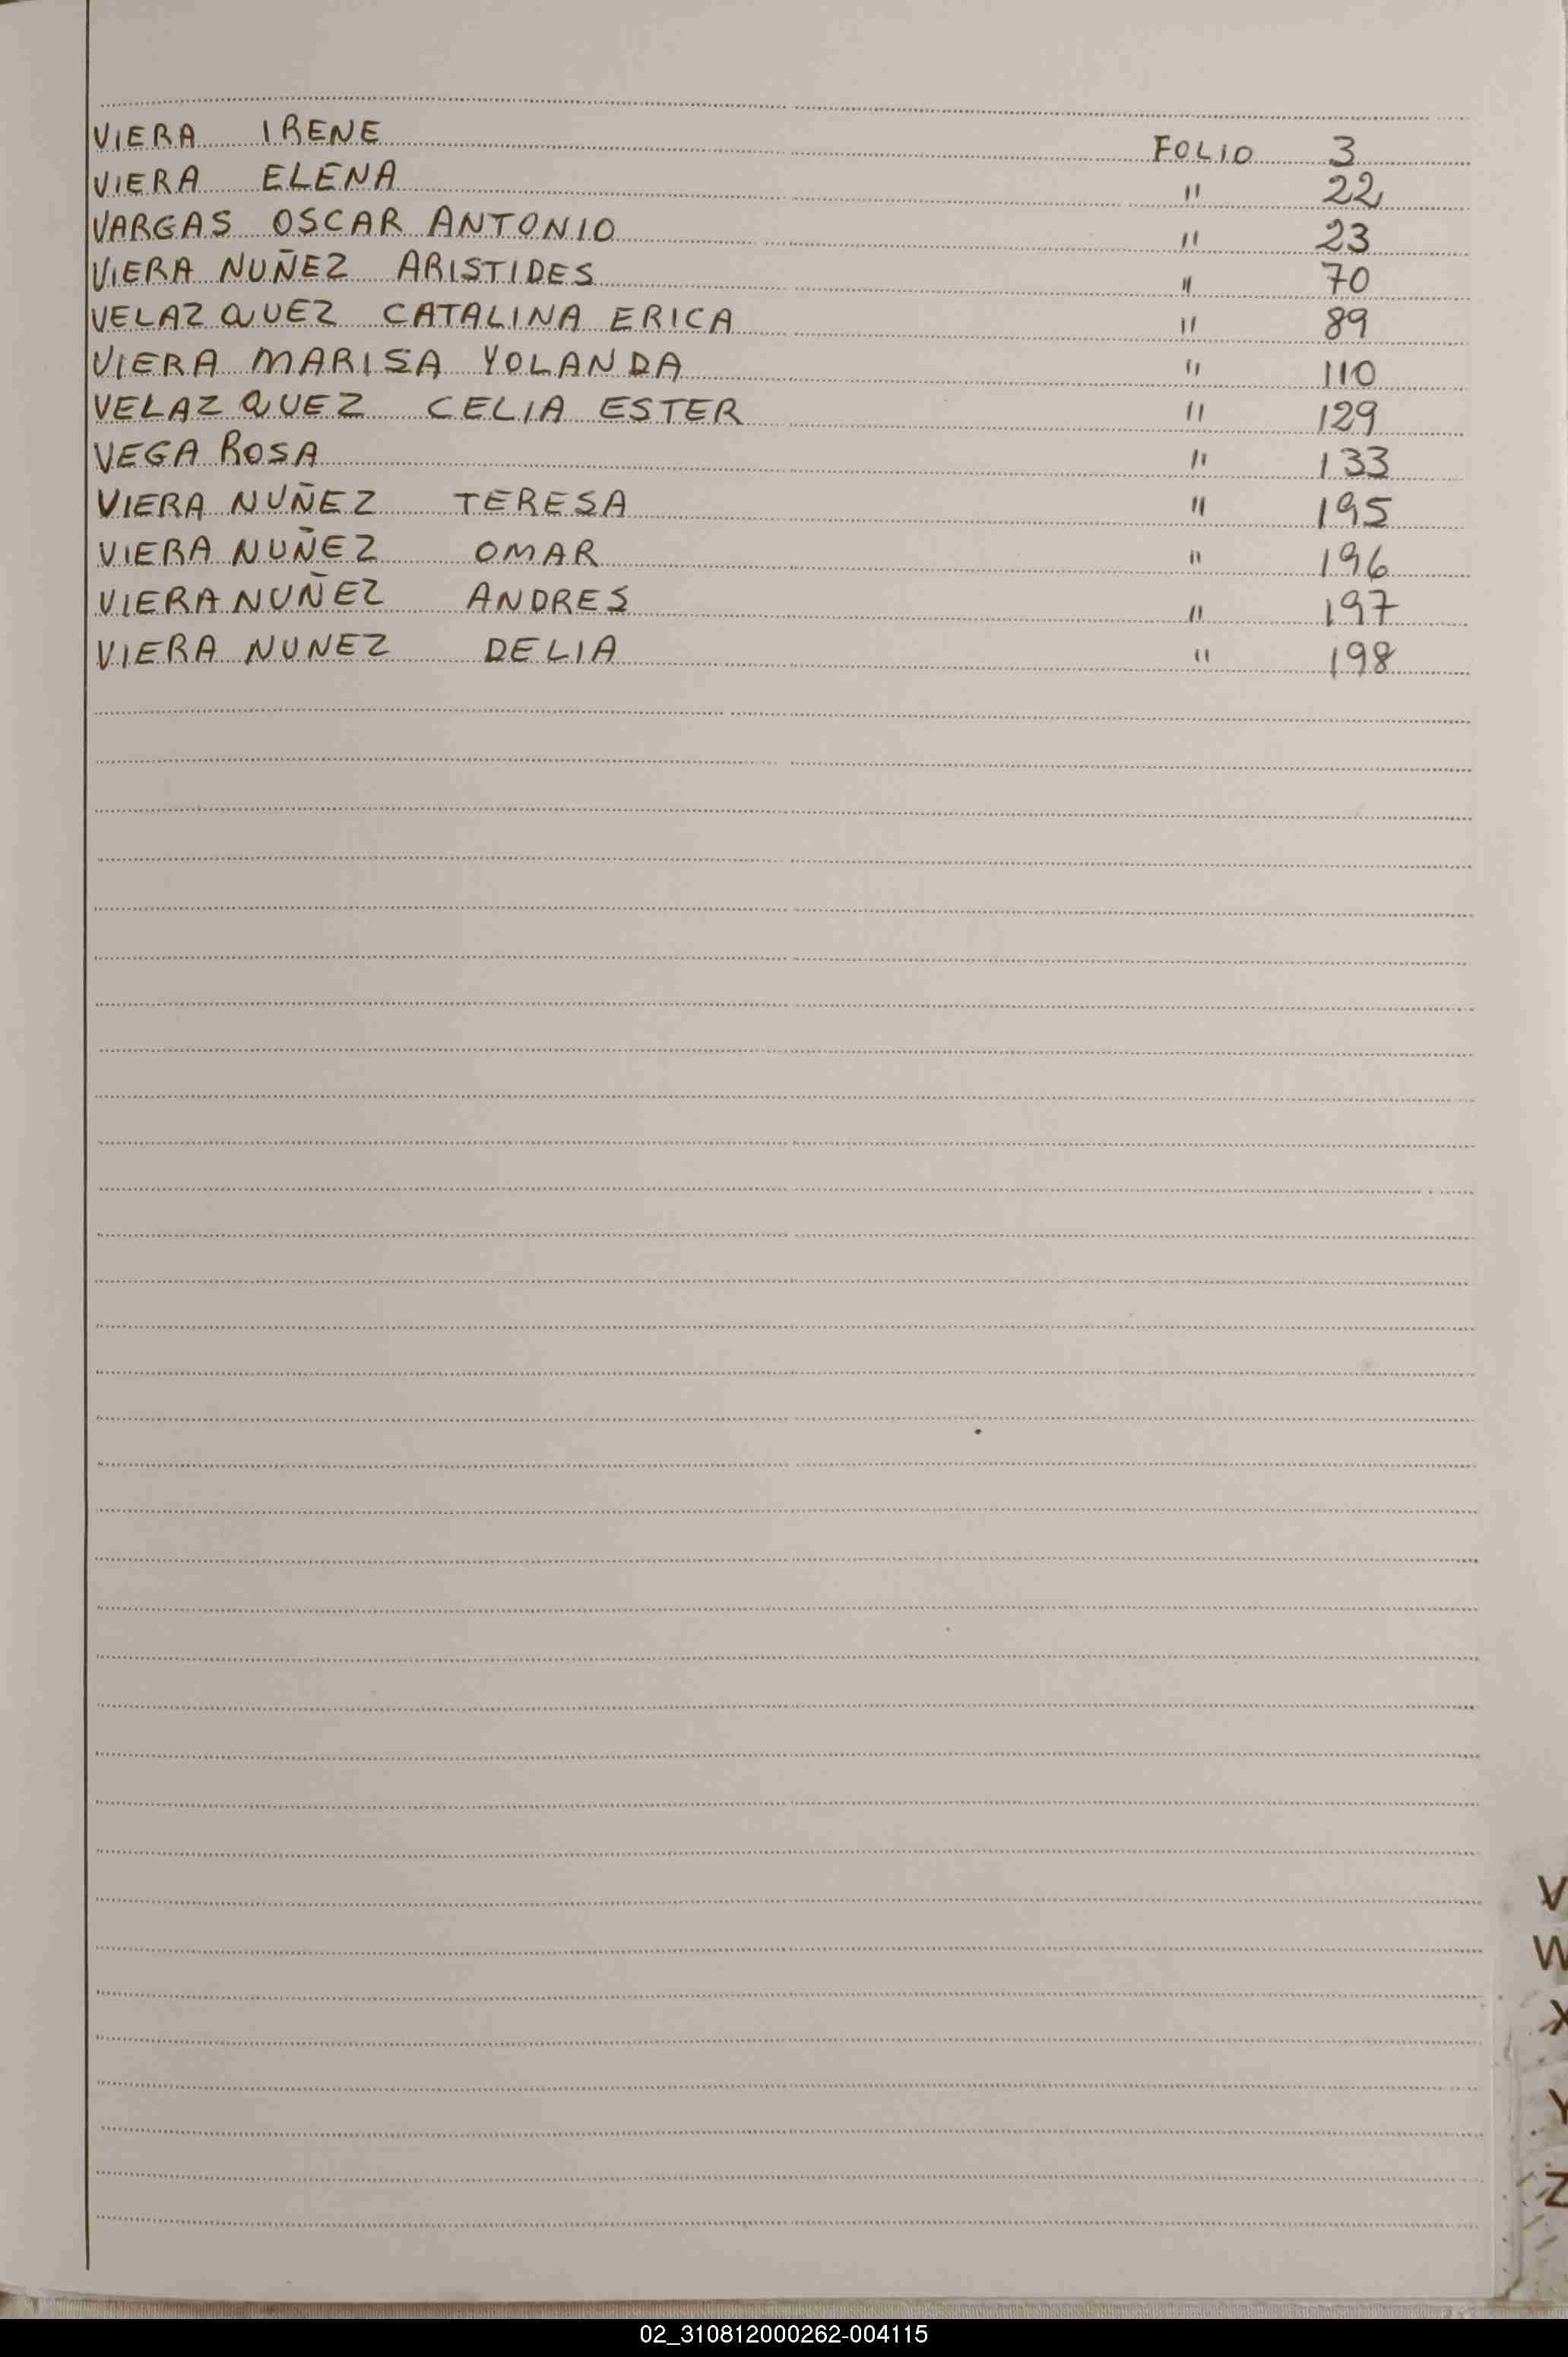 VIERA IRENE FOLIO 3
VIERA ELENA " 22
VARGAS OSCAR ANTONIO " 23
VIERA NUÑEZ ARISTIDES " 70
VELAZQUEZ CATALINA ERICA " 89
VIERA MARISA YOLANDA " 110
VELAZQUEZ CELIA ESTER " 129
VEGA ROSA " 133
VIERA NUÑEZ TERESA " 195
VIERA NUÑEZ OMAR " 196
VIERA NUÑEZ ANDRES " 197
VIERA NUNEZ DELIA " 198
V
W
X
Y
Z
02_310812000262-004115